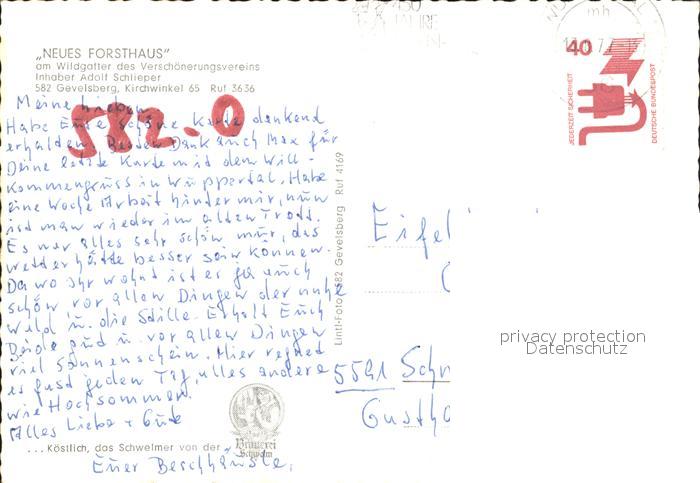 „NEUES FORSTHAUS"
am Wildgatter des Verschönerungsvereins
Inhaber Adolf Schlieper
582 Gevelsberg, Kirchwinkel 65 Ruf 3636
582.0
Meine Lieben
Habe Eure schöne Karte dankend
erhalten. Besten Dank auch Max für
Deine letzte Karte mit dem Will-
kommengruss in Wuppertal. Habe
eine Woche Arbeit hinter mir, nun
ist man wieder im alten Trott.
Es war alles sehr schön nur, das
Wetter hätte besser sein können.
Da wo Ihr wohnt ist es ja auch
schön, vor allen Dingen der nahe
Wald u. die Stille. Erholt Euch
Beide gud u. vor allen Dingen
viel Sonnenschein. Hier regned
es fast jeden Tag, alles andere
wie Hochsommer.
Alles Liebe + Gute
... Köstlich, das Schwelmer von der Brauerei Schwelm
Euer
Lintl-Foto 582 Gevelsberg Ruf 4169
JAHRE
mh
40
JEDERZEIT SICHERHEIT
DEUTSCHE BUNDESPOST
Eifel
5521 Sch
Gustha
privacy protection
Datenschutz